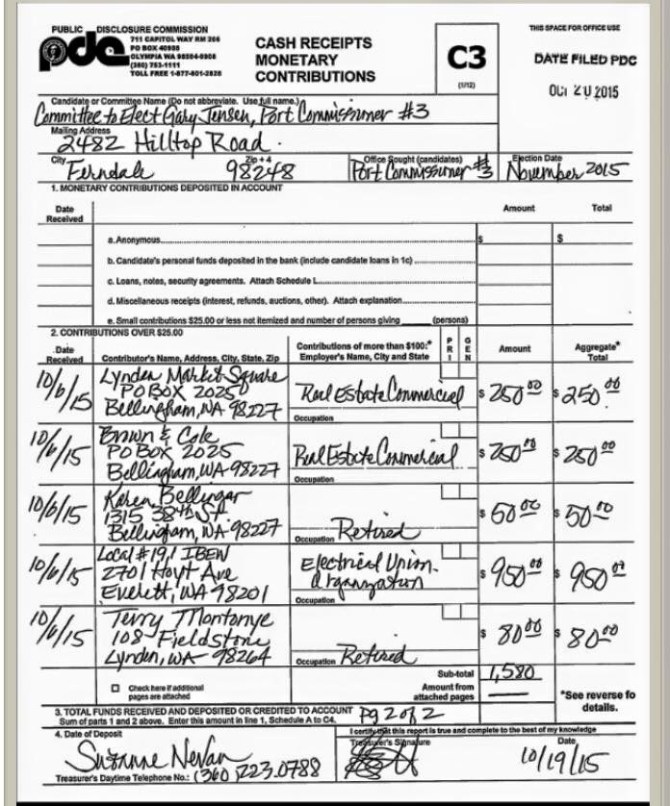 PUBLIC DISCLOSURE COMMISSION
pdc
711 CAPITOL WAY RM 206
PO BOX 40908
OLYMPIA WA 98504-0908
(360) 753-1111
TOLL FREE 1-877-601-2828
CASH RECEIPTS
MONETARY
CONTRIBUTIONS
C3
(1/12)
THIS SPACE FOR OFFICE USE
DATE FILED PDC
OCT 20 2015
Candidate or Committee Name (Do not abbreviate. Use full name.)
Committee to Elect Gary Jensen, Port Commissioner #3
Mailing Address
2482 Hilltop Road.
City Zip + 4 Office Sought (candidates) Election Date
Ferndale 98248 Port Commissioner #3 November 2015
1. MONETARY CONTRIBUTIONS DEPOSITED IN ACCOUNT
Date
Received
Amount Total
a. Anonymous $ $
b. Candidate's personal funds deposited in the bank (include candidate loans in 1c)
c. Loans, notes, security agreements. Attach Schedule L
d. Miscellaneous receipts (interest, refunds, auctions, other). Attach explanation
e. Small contributions $25.00 or less not itemized and number of persons giving ______ (persons)
2. CONTRIBUTIONS OVER $25.00
Date
Received
Contributor's Name, Address, City, State, Zip
Contributions of more than $100:*
Employer's Name, City and State
PRI
GEN
Amount
Aggregate*
Total
10/6/15
Lynden Market Square
PO BOX 2025
Bellingham, WA 98227
Real Estate Commercial
Occupation
$ 250.00 $ 250.00
10/6/15
Brown & Cole
PO BOX 2025
Bellingham, WA 98227
Real Estate Commercial
Occupation
$ 250.00 $ 250.00
10/6/15
Karen Bellinger
1315 38th St
Bellingham, WA 98227
Occupation Retired
$ 50.00 $ 50.00
10/6/15
Local #191 IBEW
2701 Hoyt Ave
Everett, WA 98201
Electrical Union
Organization
Occupation
$ 950.00 $ 950.00
10/6/15
Terry Montonye
108 Fieldstone
Lynden, WA 98264
Occupation Retired
$ 80.00 $ 80.00
Sub-total 1,580
Check here if additional
pages are attached
Amount from
attached pages
*See reverse fo
details.
3. TOTAL FUNDS RECEIVED AND DEPOSITED OR CREDITED TO ACCOUNT
Sum of parts 1 and 2 above. Enter this amount in line 1, Schedule A to C4.
Pg 2 of 2
4. Date of Deposit
Suzanne Nevan
Treasurer's Daytime Telephone No.: (360) 223.0788
I certify that this report is true and complete to the best of my knowledge
Treasurer's Signature
Date
10/19/15